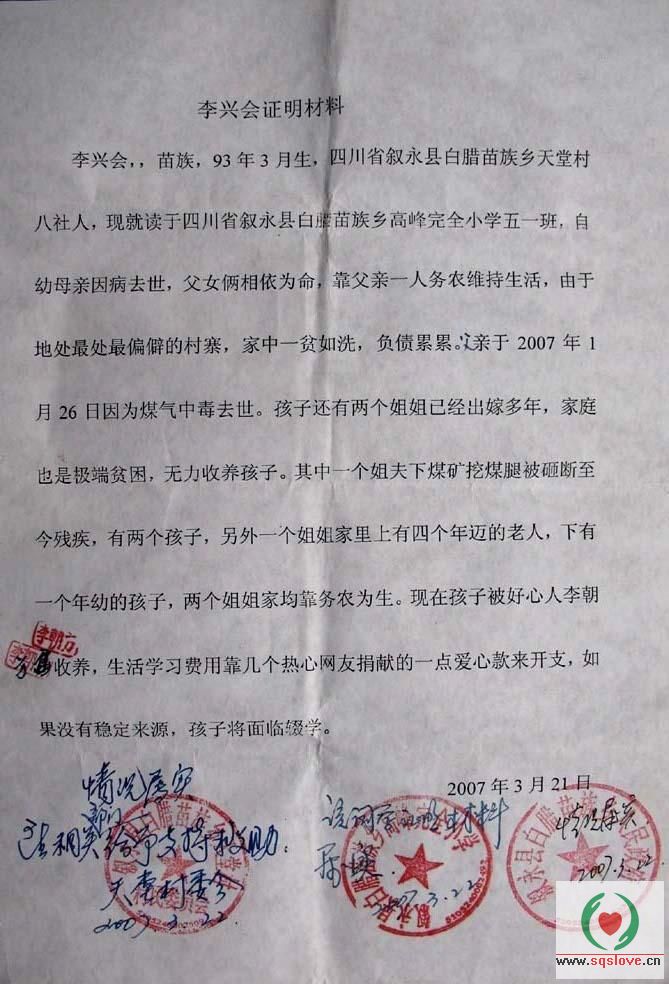 李兴会证明材料
李兴会，，苗族，93 年 3 月生，四川省叙永县白腊苗族乡天堂村
八社人，现就读于四川省叙永县白腊苗族乡高峰完全小学五一班，自
幼母亲因病去世，父女俩相依为命，靠父亲一人务农维持生活，由于
地处最处最偏僻的村寨，家中一贫如洗，负债累累。父亲于 2007 年 1
月 26 日因为煤气中毒去世。孩子还有两个姐姐已经出嫁多年，家庭
也是极端贫困，无力收养孩子。其中一个姐夫下煤矿挖煤腿被砸断至
今残疾，有两个孩子，另外一个姐姐家里上有四个年迈的老人，下有
一个年幼的孩子，两个姐姐家均靠务农为生。现在孩子被好心人李朝
李朝方
收养，生活学习费用靠几个热心网友捐献的一点爱心款来开支，如
果没有稳定来源，孩子将面临辍学。
2007 年 3 月 21 日
情况属实
部门
请相关给予支持救助：
天堂村委会
2007.3.22
该同学
材料
2007.3.22
情况属实
2007.3.22
叙永县白腊苗族
www.sqslove.cn